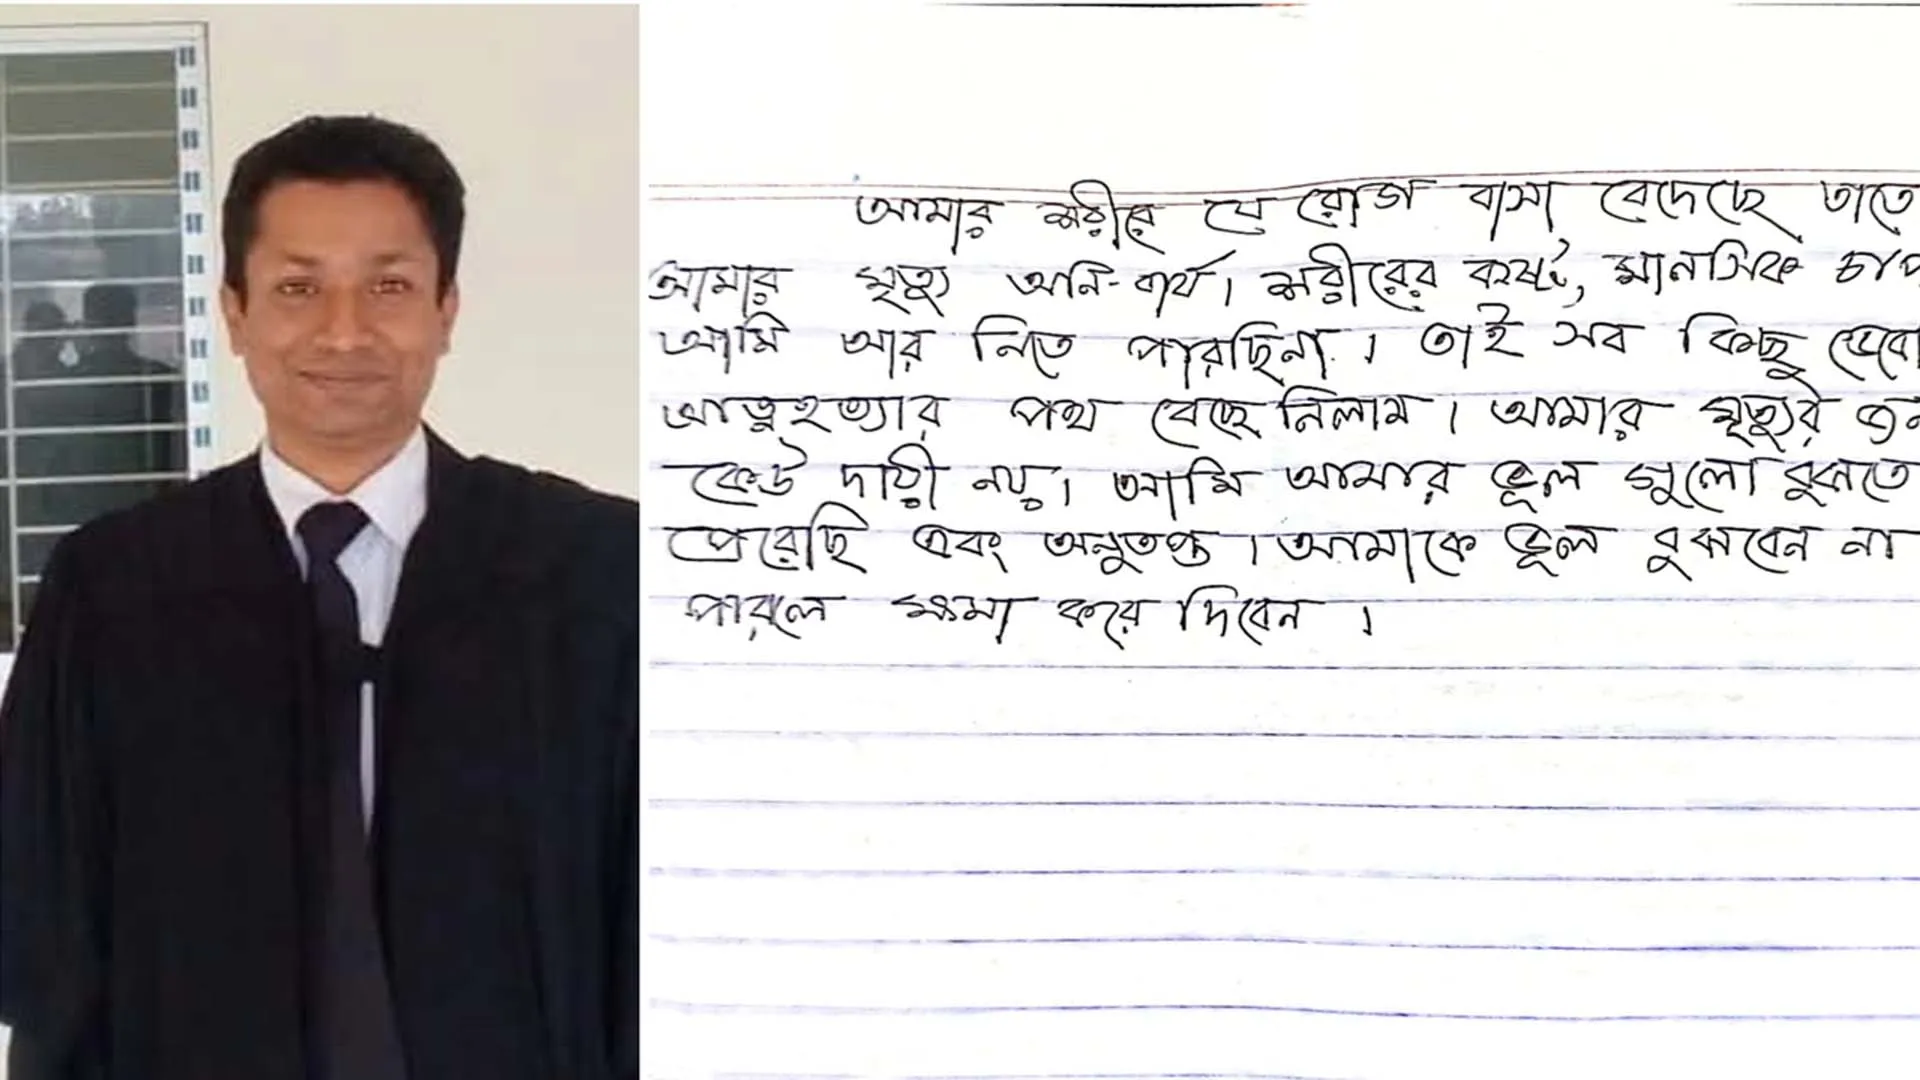 আমার শরীরে যে রোগ বাসা বেদেছে তাতে
আমার মৃত্যু অনি-বার্য। শরীরের কষ্ট, মানসিক চাপ
আমি আর নিতে পারছিনা। তাই সব কিছু ভেবে
আত্নহত্যার পথ বেছে নিলাম। আমার মৃত্যুর
কেউ দায়ী নয়। আমি আমার ভূল গুলো বুঝতে
পেরেছি এবং অনুতপ্ত। আমাকে ভূল বুঝবেন না
পারলে ক্ষমা করে দিবেন।